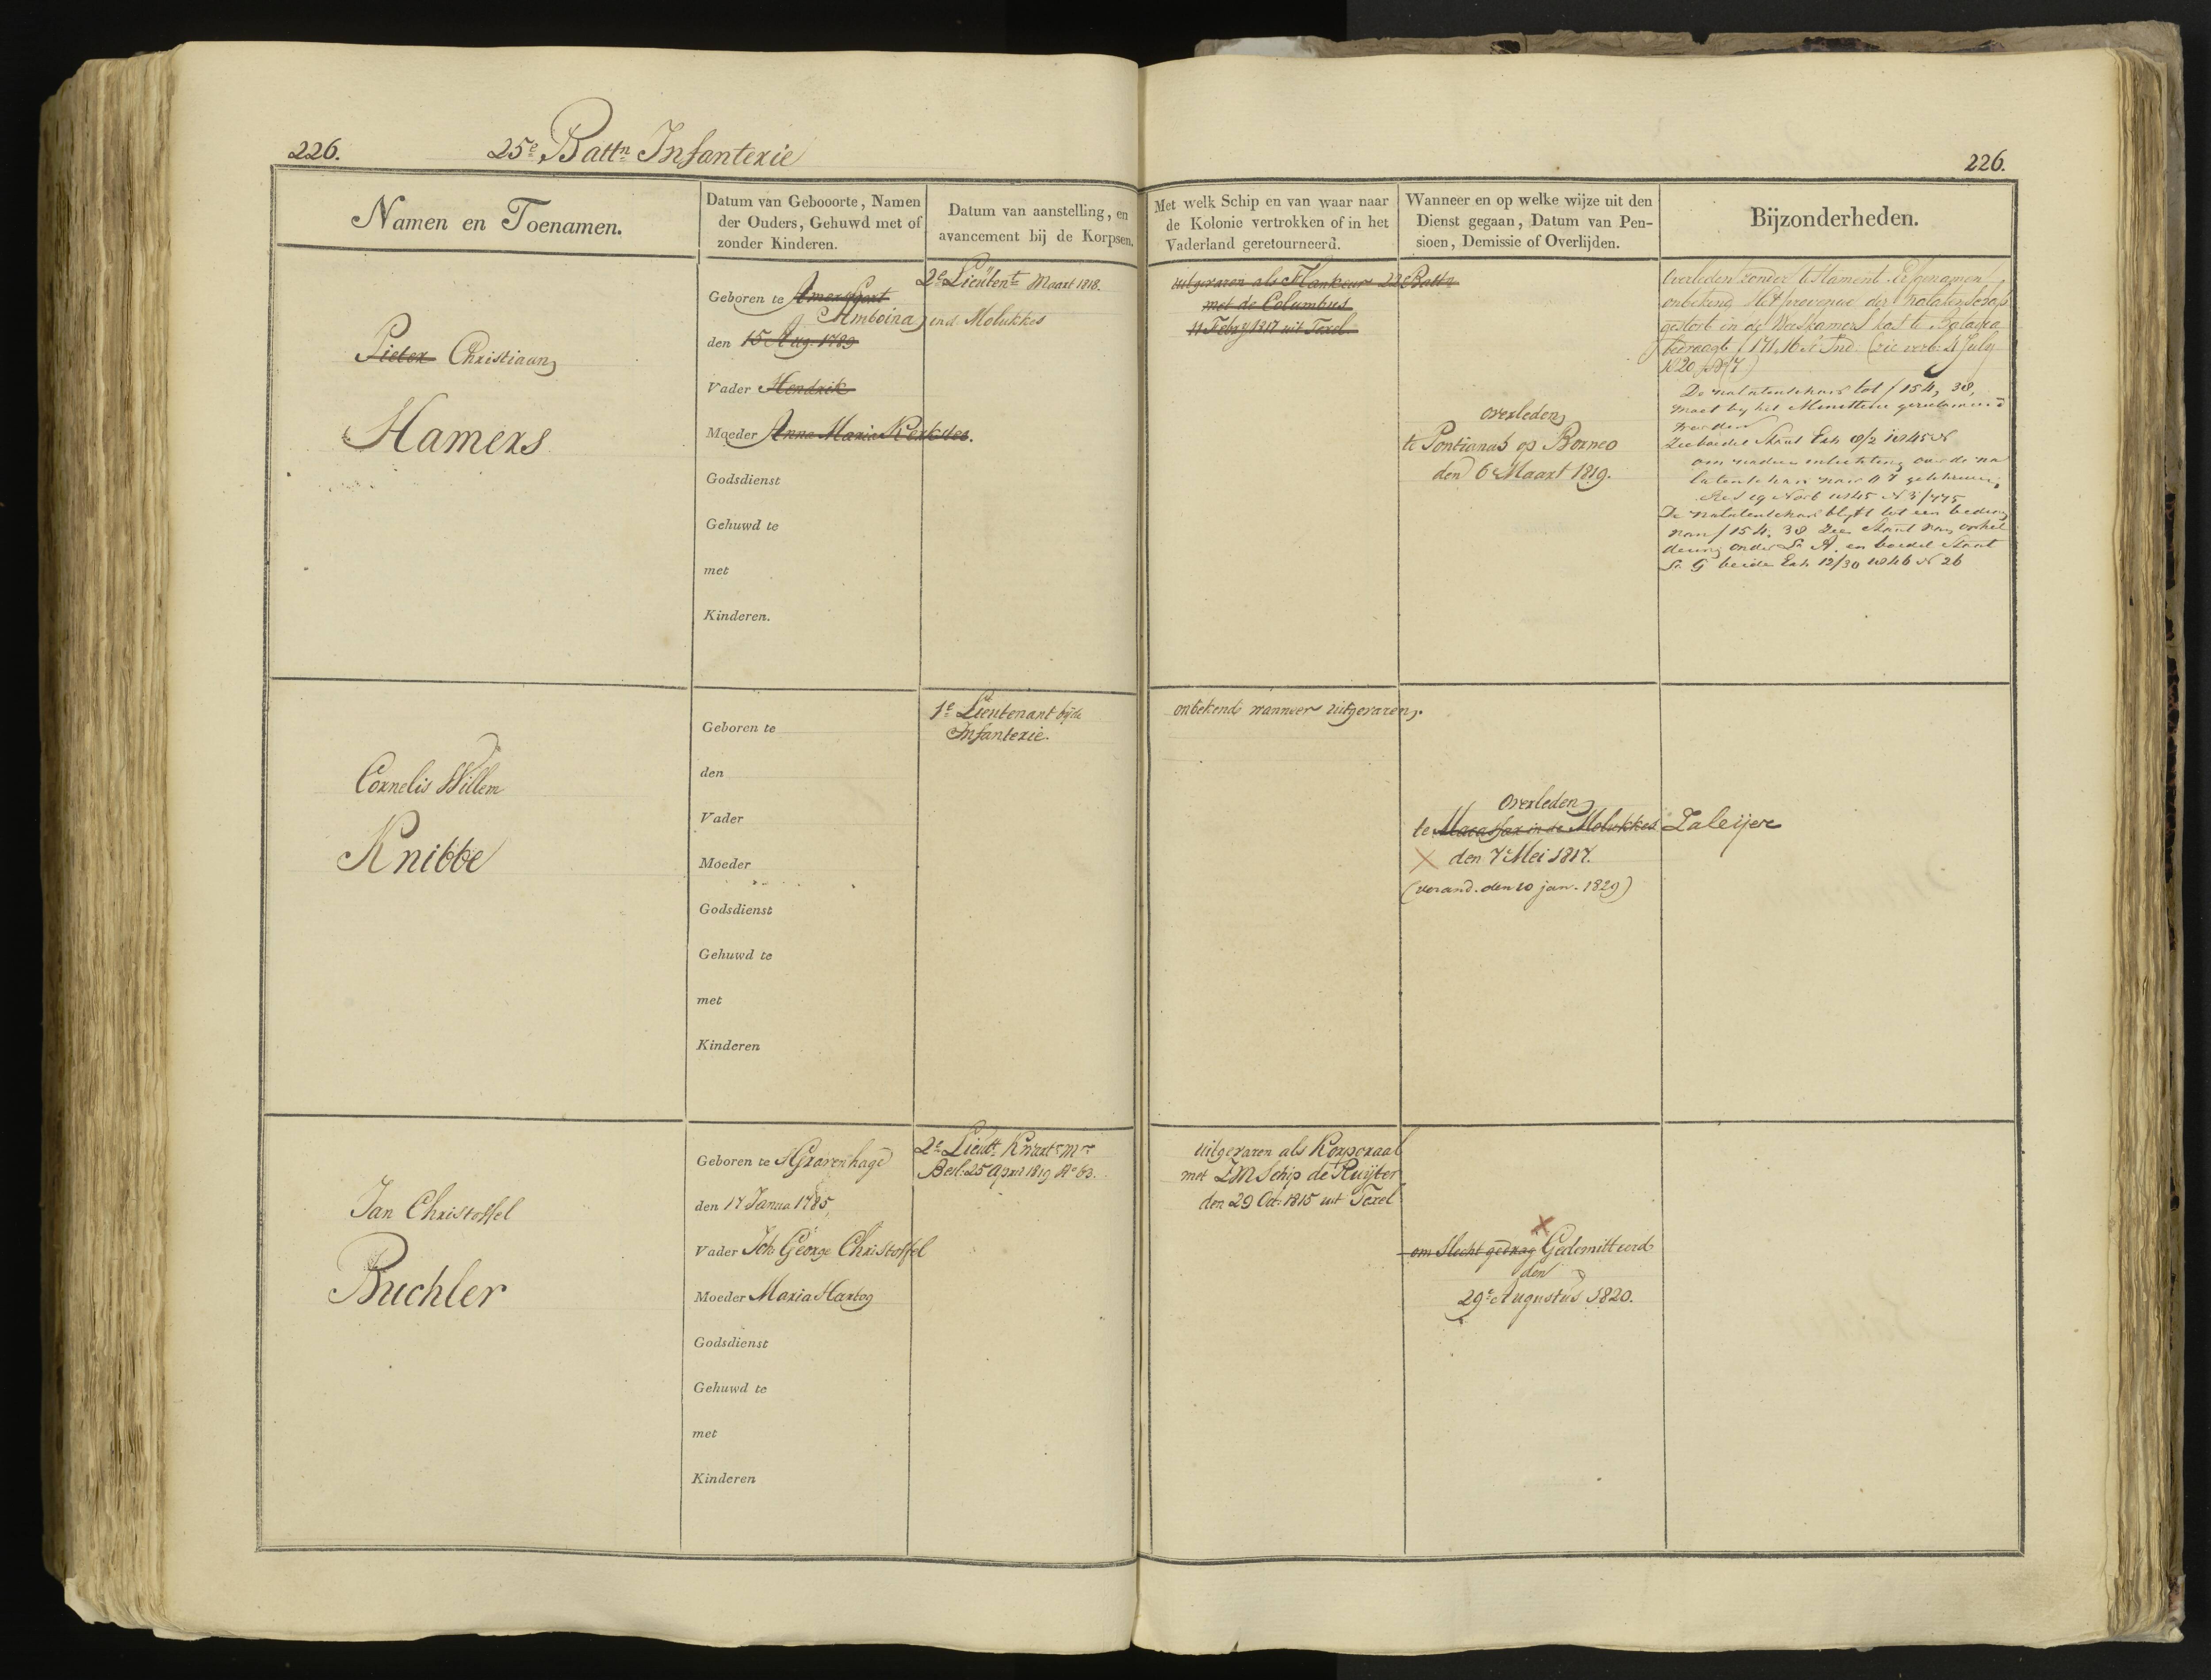 226.
25e Battn Infanterie
226.
Namen en Toenamen.
Datum van Gebooorte, Namen
der Ouders, Gehuwd met of
zonder Kinderen.
Datum van aanstelling, en
avancement bij de Korpsen.
Met welk Schip en van waar naar
de Kolonie vertrokken of in het
Vaderland geretourneerd.
Wanneer en op welke wijze uit den
Dienst gegaan, Datum van Pen-
sioen, Demissie of Overlijden.
Bijzonderheden.
Pieter Christiaan
Hamers
Geboren te Amersfoort
Amboina in d Molukkes
den 15 Aug. 1789
Vader Hendrik
Moeder Anna Maria Kerkdes.
Godsdienst
Gehuwd te
met
Kinderen.
2e Lieutent Maart 1818.
uitgevaren als Flankeur 22e Battn
met de Columbus
11 Febry 1817 uit Texel
overleden
te Pontianak op Borneo
den 6e Maart 1819.
Overleden zonder testament. Erfgenamen
onbekend Het provenue der nalatenschap
gestort in de Weeskamers kas te Batavia
bedraagt f 171.16 st Ind. (zie verb: 4 July
1820 No 7)
De nalatenschap tot f 154, 38,
moet by het Ministerie gereclameerd
worden
Zie boedel Staat Exh 8/2 1845 N
om nadere inlichting over de na
latenschap naar geschreven
Res 19 Novb 1845 N 3/775
De nalatenschap blyft tot een bedrag
van f 154.38 Zie Staat van
onder La A. en boedel Staat
La G beide Exh 12/30 1846 N 26
Cornelis Willem
Knibbe
Geboren te
den
Vader
Moeder
Godsdienst
Gehuwd te
met
Kinderen
1e Lieutenant bij de
Infanterie.
onbekend wanneer uitgevaren.
Overleden
te Macassar in de Molukkes Saleijer
den 7e Mei 1817.
(verand. den 10 jan. 1829)
Jan Christoffel
Buchler
Geboren te sGravenhage
den 17 Janua 1785
Vader Joh George Christoffel
Moeder Maria Hartog
Godsdienst
Gehuwd te
met
Kinderen
2e Lieutt Kwartrmr
Besl. 25 April 1819 No 63.
uitgevaren als Korporaal
met ZM Schip de Ruijter
den 29 Oct. 1815 uit Texel
om slecht gedrag Gedemitteerd
den
29e Augustus 1820.